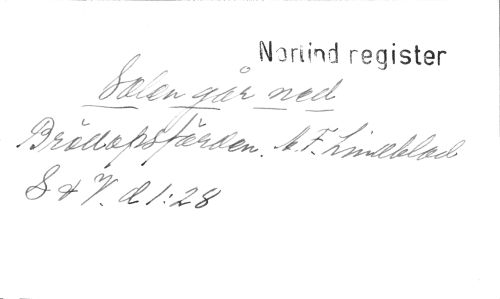 Norlind register
Solen går ned
Bröllopsfärden. A. F. Lindblad
S & V. d 1:28